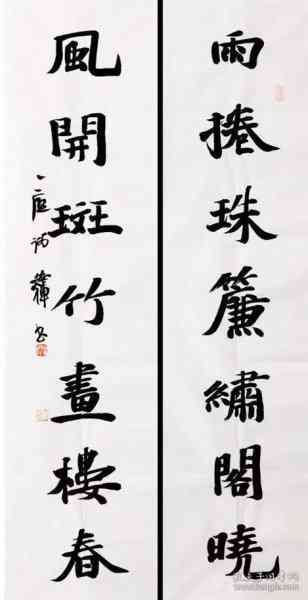 雨捲珠簾繡閣曉
風開斑竹畫樓春